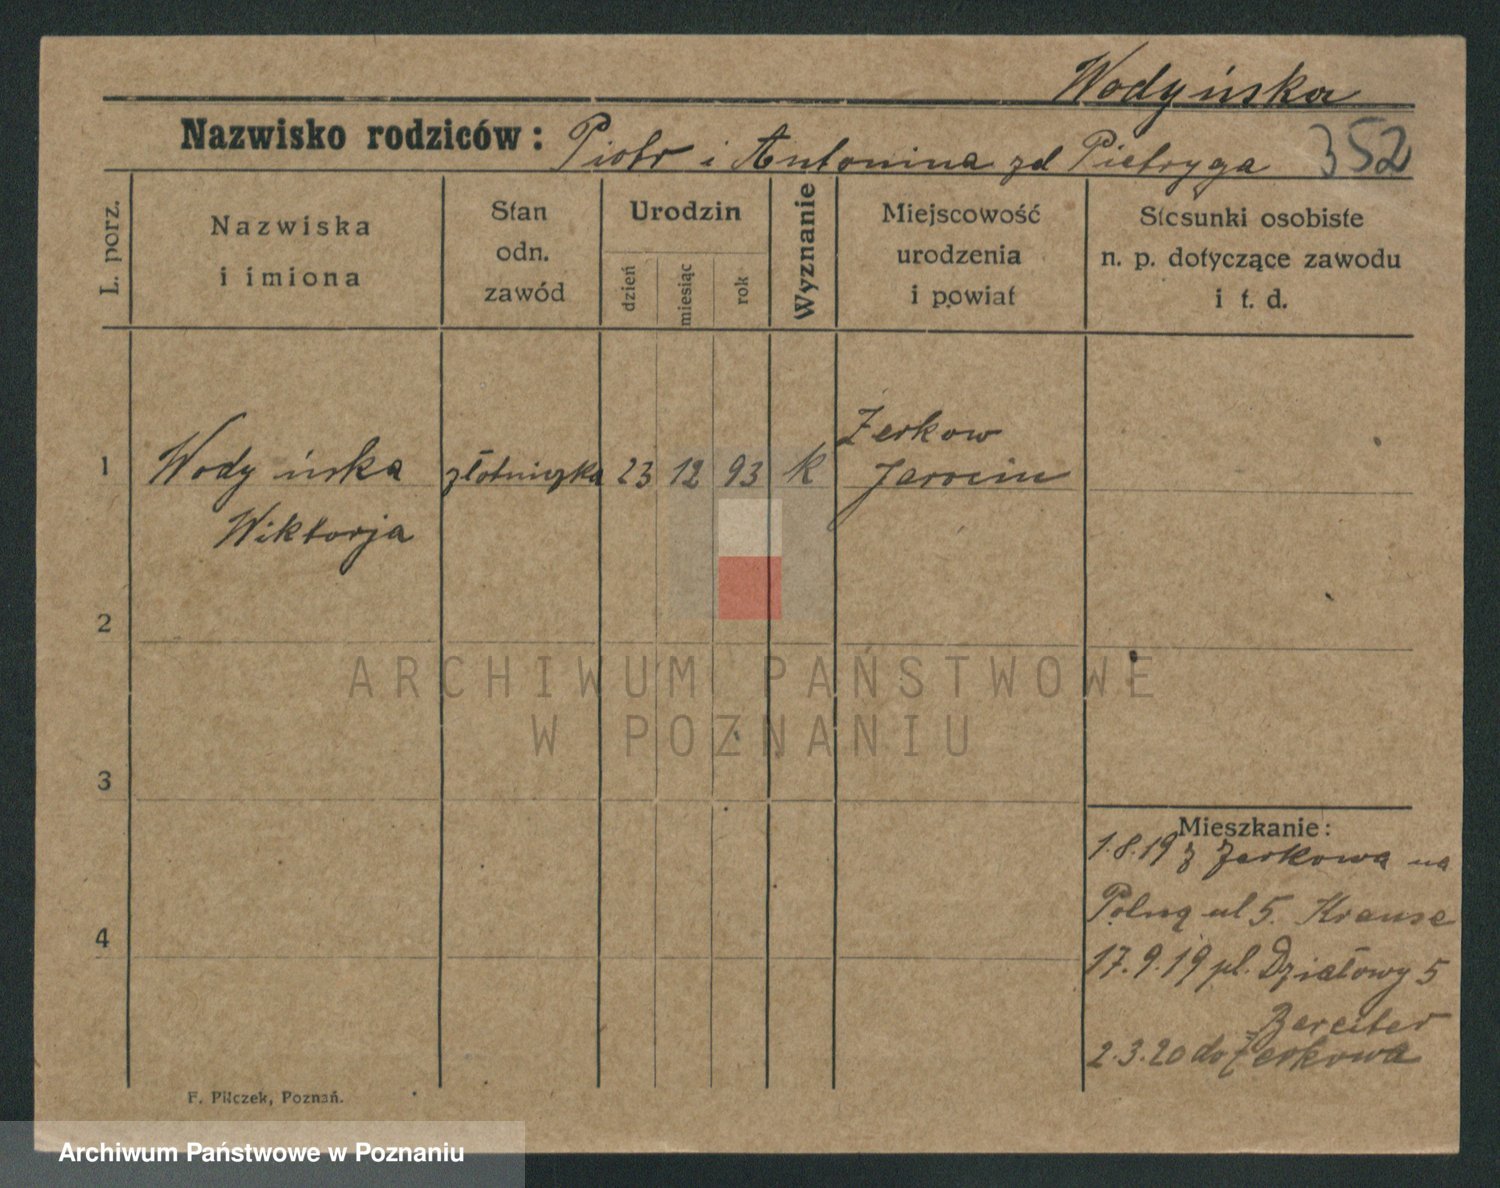 Wodyńska
Nazwisko rodziców: Piotr i Antonina zd Pietryga 352
L. porz.
Nazwiska
i imiona
Stan
odn.
zawód
Urodzin
dzień
miesiąc
rok
Wyznanie
Miejscowość
urodzenia
i powiat
Stosunki osobiste
n. p. dotyczące zawodu
i t. d.
1 Wodyńska złotniczka 23 12 93 k Żerkow
Jarocin
Wiktorja
2
3
4
ARCHIWUM PAŃSTWOWE
W POZNANIU
Mieszkanie:
1.8.19 z Żerkowa na
Polną ul 5. Krause
17.9.19 pl. Działowy 5
Bereiter
2.3.20 do Żerkowa
F. Pilczek, Poznań.
Archiwum Państwowe w Poznaniu